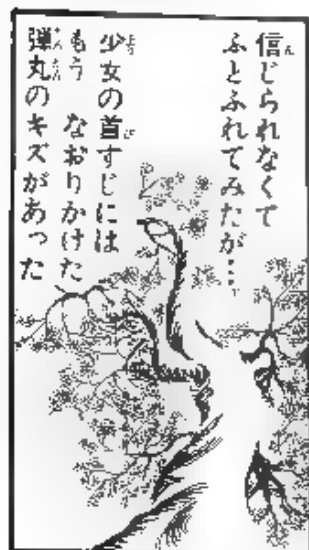 信じられなくて
ふとふれてみたが…
少女の首すじには
もう なおりかけた
弾丸のキズがあった